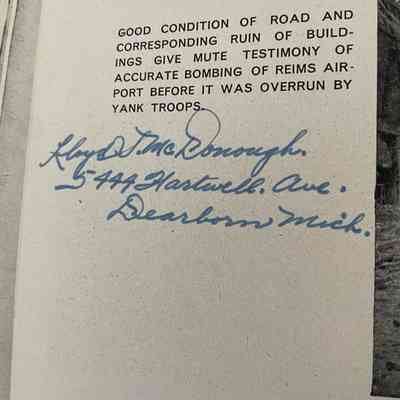 GOOD CONDITION OF ROAD AND
CORRESPONDING RUIN OF BUILD-
INGS GIVE MUTE TESTIMONY OF
ACCURATE BOMBING OF REIMS AIR-
PORT BEFORE IT WAS OVERRUN BY
YANK TROOPS.
Kloyd J. McDonough.
5444 Hartwell. Ave.
Dearborn Mich.